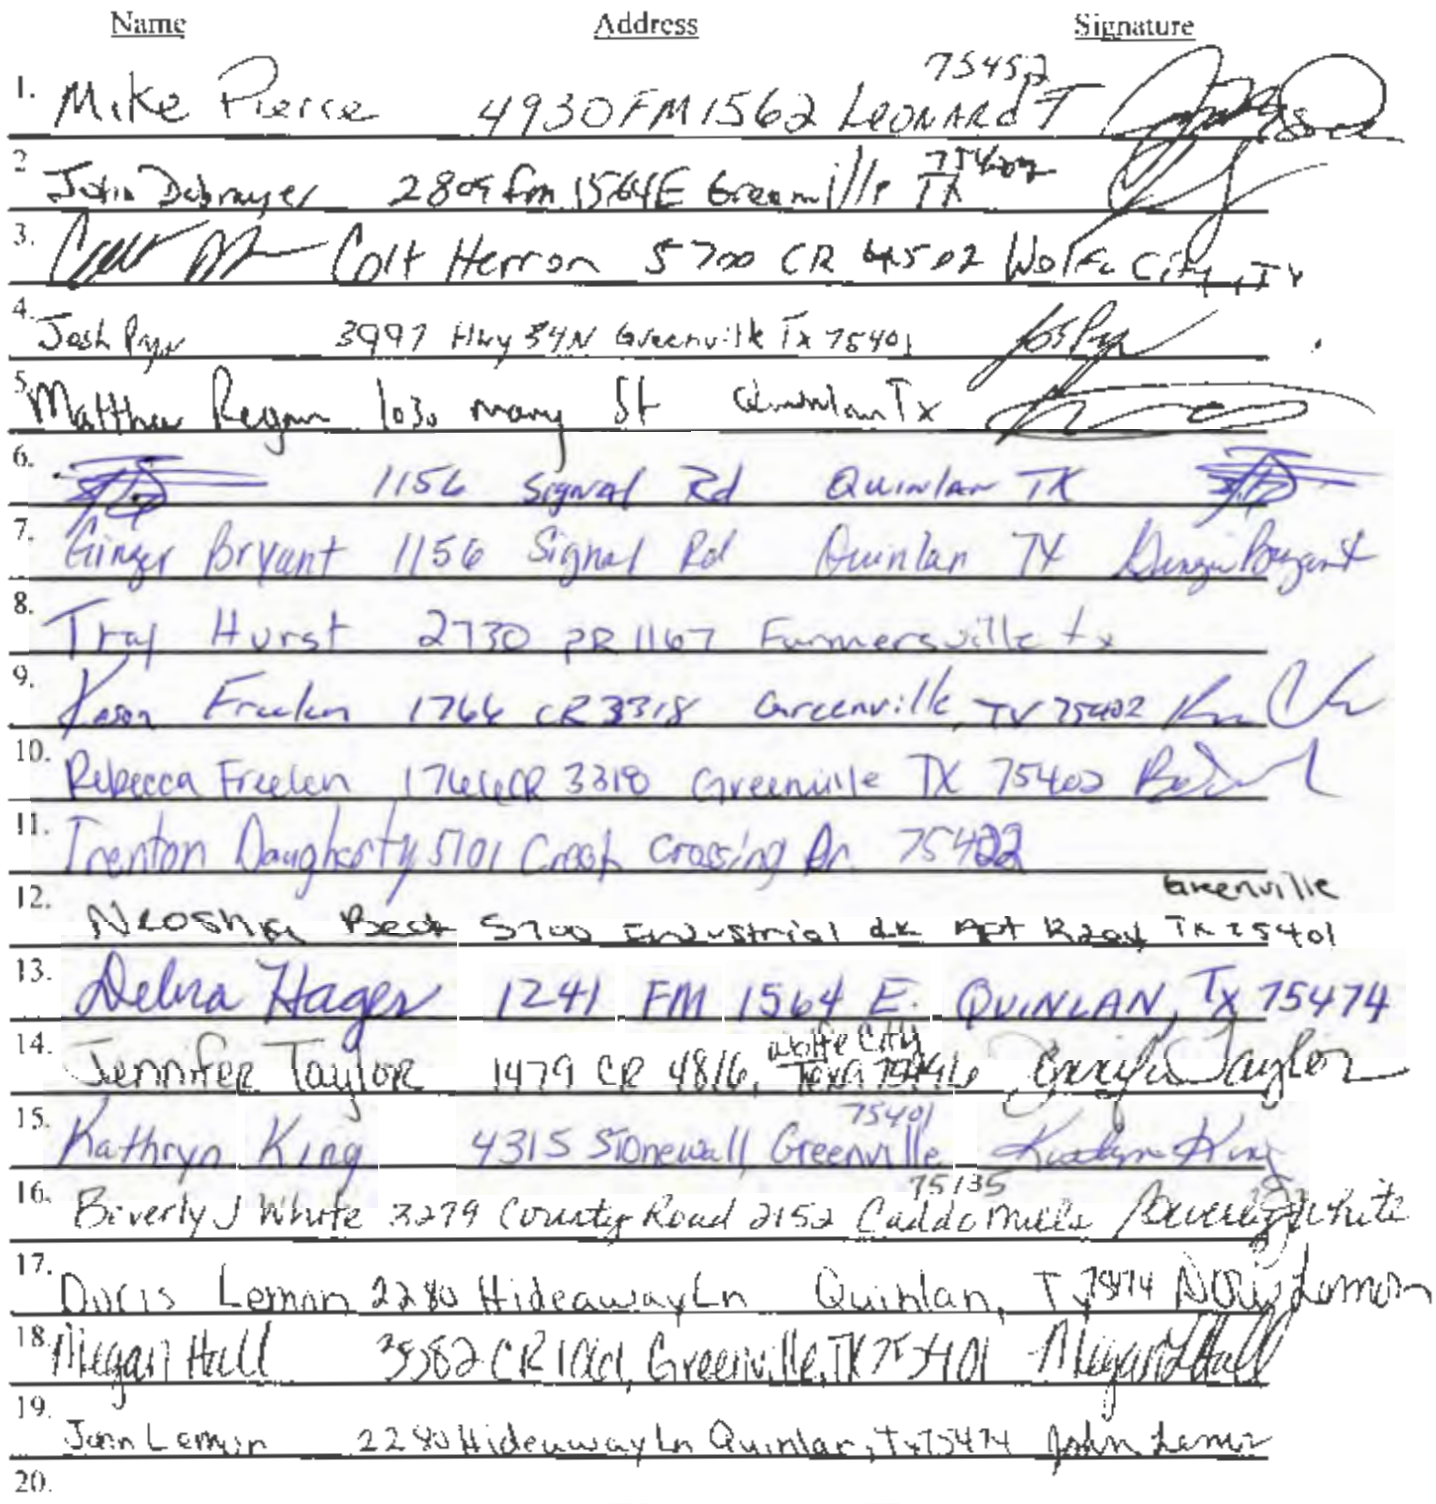 Name Address Signature
1. Mike Pierce 4930 FM 1562 Leonard T 75452
2 John Debrayer 2809 Fm 1564 E Greenville TX 75402
3. Colt Herron 5700 CR 4502 Wolfe City, TX
4. Josh Pyn 3997 Hwy 34N Greenville Tx 75401
5. Matthew Regan 1030 many St Quinlan Tx
6. 1156 Signal Rd Quinlan TX
7. Ginger Bryant 1156 Signal Rd Quinlan TX Ginger Bryant
8. Tray Hurst 2730 PR 1167 Farmersville tx
9. Kason Freelen 1766 CR 3318 Greenville, TX 75402
10. Rebecca Freelen 1766 CR 3318 Greenville TX 75402
11. Trenton Daugherty 5701 Creek Crossing Dr. 75422
12. Neosha Beck 5700 Industrial dr Apt Greenville TX 75401
13. Debra Hager 1241 FM 1564 E. QUINLAN, Tx 75474
14. Jennifer Taylor 1479 CR 4816, Wolfe City Texa 75496 Jennifer Taylor
15. Kathryn King 4315 Stonewall, Greenville 75401 Kathryn King
16. Beverly J White 3279 County Road 2152 Caddo Mills 75135 Beverly J White
17. Doris Lemon 2280 Hideaway Ln Quinlan, Tx 75474 Doris Lemon
18. Megan Hall 3582 CR 1061, Greenville, TX 75401 Megan Hall
19. John Lemon 2280 Hideaway Ln Quinlan, Tx 75474 John Lemon
20.